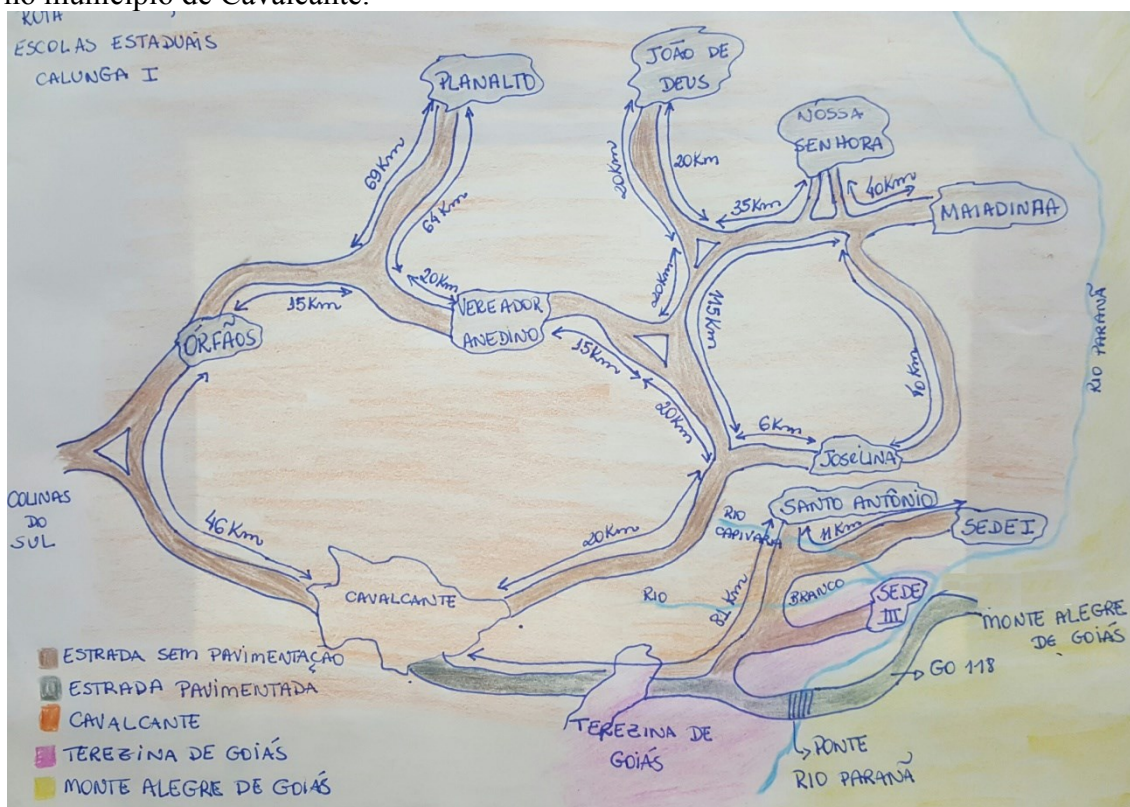 no município de Cavalcante.
ROTA
ESCOLAS ESTADUAIS
CALUNGA I
PLANALTO
JOÃO DE
DEUS
NOSSA
SENHORA
MAIADINHA
69Km
64Km
20Km
20Km
35Km
40Km
20Km
15Km
20Km
VEREADOR
ANEDINO
15Km
20Km
ÓRFÃOS
6Km
JOSELINA
RIO PARANÃ
COLINAS
DO
SUL
46Km
20Km
CAVALCANTE
SANTO ANTÔNIO
RIO
CAPIVARA
11Km
SEDE I
RIO
BRANCO
SEDE
III
MONTE ALEGRE
DE GOIÁS
GO 118
TEREZINA DE
GOIÁS
PONTE
RIO PARANÃ
ESTRADA SEM PAVIMENTAÇÃO
ESTRADA PAVIMENTADA
CAVALCANTE
TEREZINA DE GOIÁS
MONTE ALEGRE DE GOIÁS